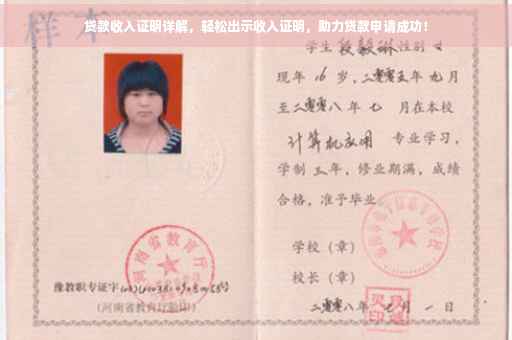 贷款收入证明详解，轻松出示收入证明，助力贷款申请成功！
样本
学生段毅琳性别女
现年16岁，二零零五年九月
至二零零八年七月在本校
计算机应用 专业学习，
学制三年，修业期满，成绩
合格，准予毕业。
学校（章）
校长（章）
二零零八年七月一日
河南省教育厅
豫教职专证字
（河南省教育厅验印）